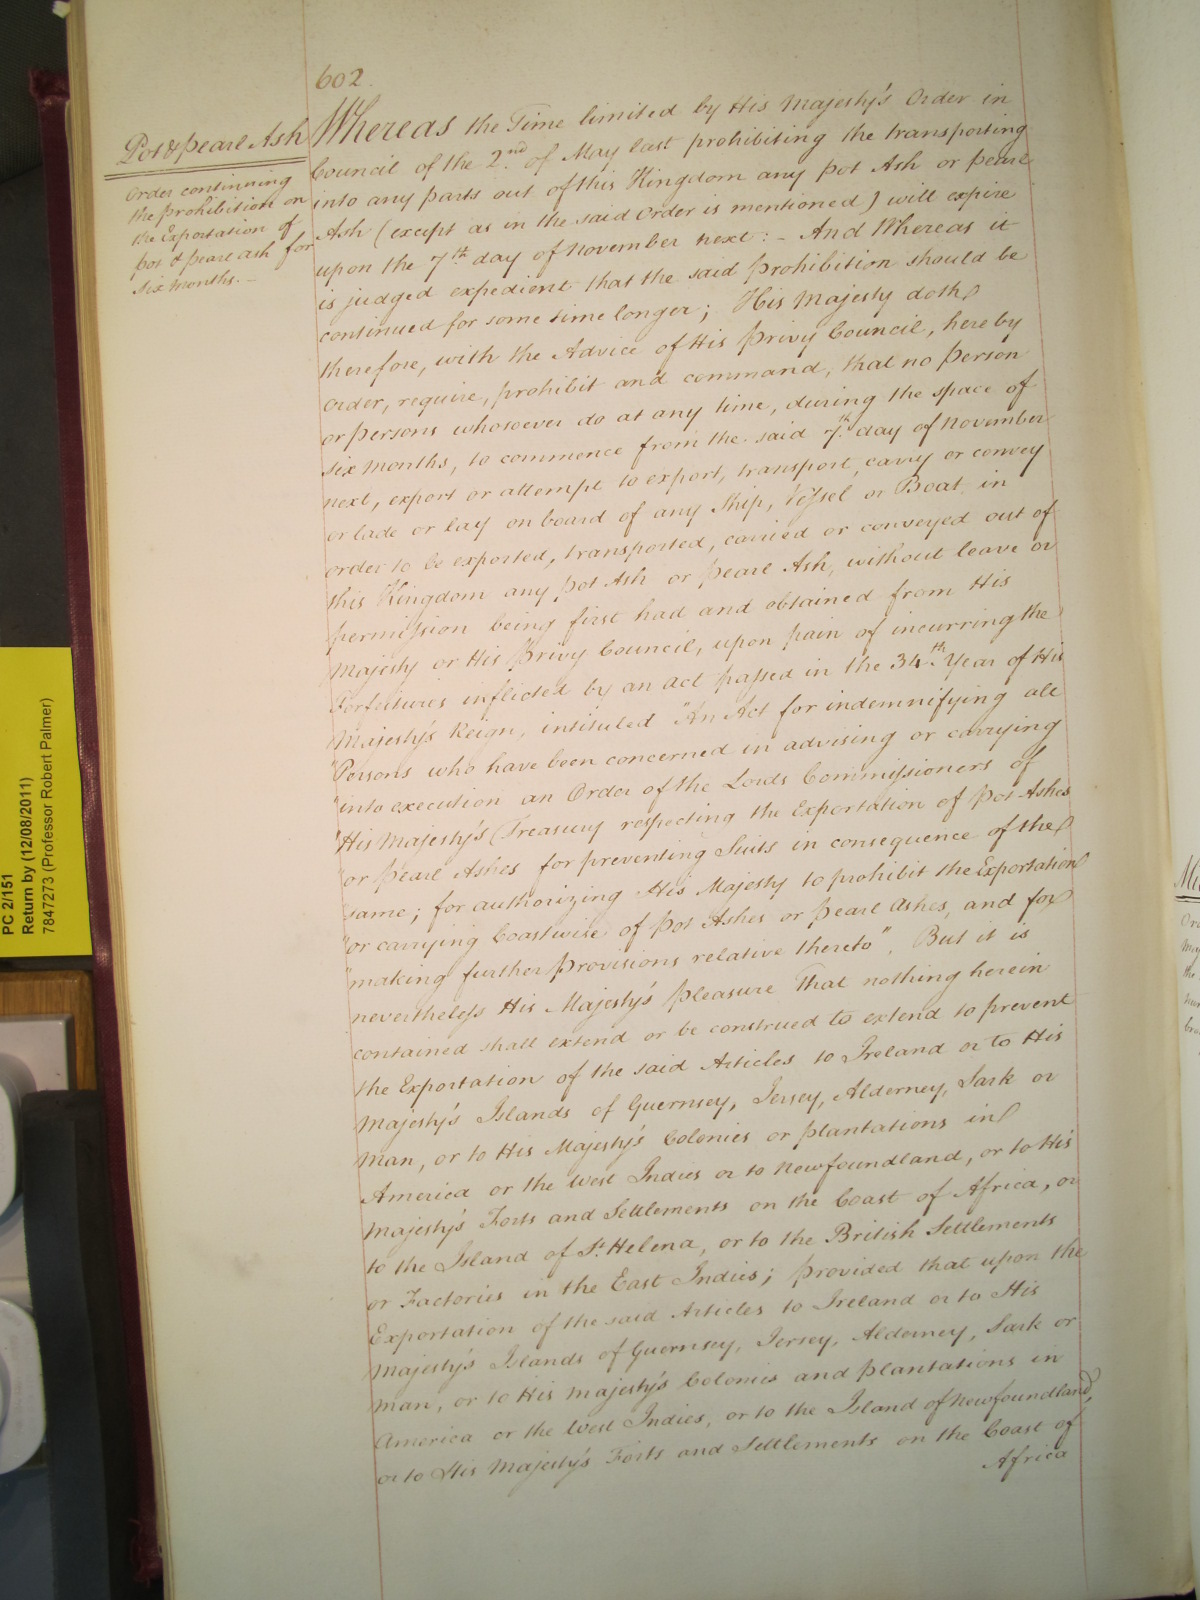 602.
Pot & pearl Ash
Order continuing
the prohibition on
the Exportation of
pot & pearl ash for
six months. –
Whereas the Time limited by His Majesty's Order in
Council of the 2nd. of May last prohibiting the transporting
into any parts out of this Kingdom any pot Ash or pearl
Ash (except as in the said Order is mentioned) will expire
upon the 7th. day of November next: – And Whereas it
is judged expedient that the said prohibition should be
continued for some time longer; His Majesty doth
therefore, with the Advice of His Privy Council, hereby
Order, require, prohibit and command, that no person
or persons whosoever do at any time, during the space of
six months, to commence from the said 7th. day of November
next, export or attempt to export, transport, carry or convey
or lade or lay on board of any Ship, Vessel or Boat in
order to be exported, transported, carried or conveyed out of
this Kingdom any pot Ash or pearl Ash, without leave or
permission being first had and obtained from His
Majesty or His Privy Council, upon pain of incurring the
Forfeitures inflicted by an Act passed in the 34th. Year of His
Majesty's Reign, intituled "An Act for indemnifying all
"Persons who have been concerned in advising or carrying
"into execution an Order of the Lords Commissioners of
"His Majesty's Treasury respecting the Exportation of Pot Ashes
"or Pearl Ashes for preventing Suits in consequence of the
same; for authorizing His Majesty to prohibit the Exportation
"or carrying Coastwise of Pot Ashes or Pearl Ashes, and for
"making further Provisions relative thereto". But it is
nevertheless His Majesty's pleasure That nothing herein
contained shall extend or be construed to extend to prevent
the Exportation of the said Articles to Ireland or to His
Majesty's Islands of Guernsey, Jersey, Alderney, Sark or
Man, or to His Majesty's Colonies or plantations in
America or the West Indies or to Newfoundland, or to His
Majesty's Forts and Settlements on the Coast of Africa, or
to the Island of St. Helena, or to the British Settlements
or Factories in the East Indies; provided that upon the
Exportation of the said Articles to Ireland or to His
Majesty's Islands of Guernsey, Jersey, Alderney, Sark or
Man, or to His Majesty's Colonies and plantations in
America or the West Indies, or to the Island of Newfoundland,
or to His Majesty's Forts and Settlements on the Coast of
Africa
PC 2/151
Return by (12/08/2011)
7847273 (Professor Robert Palmer)